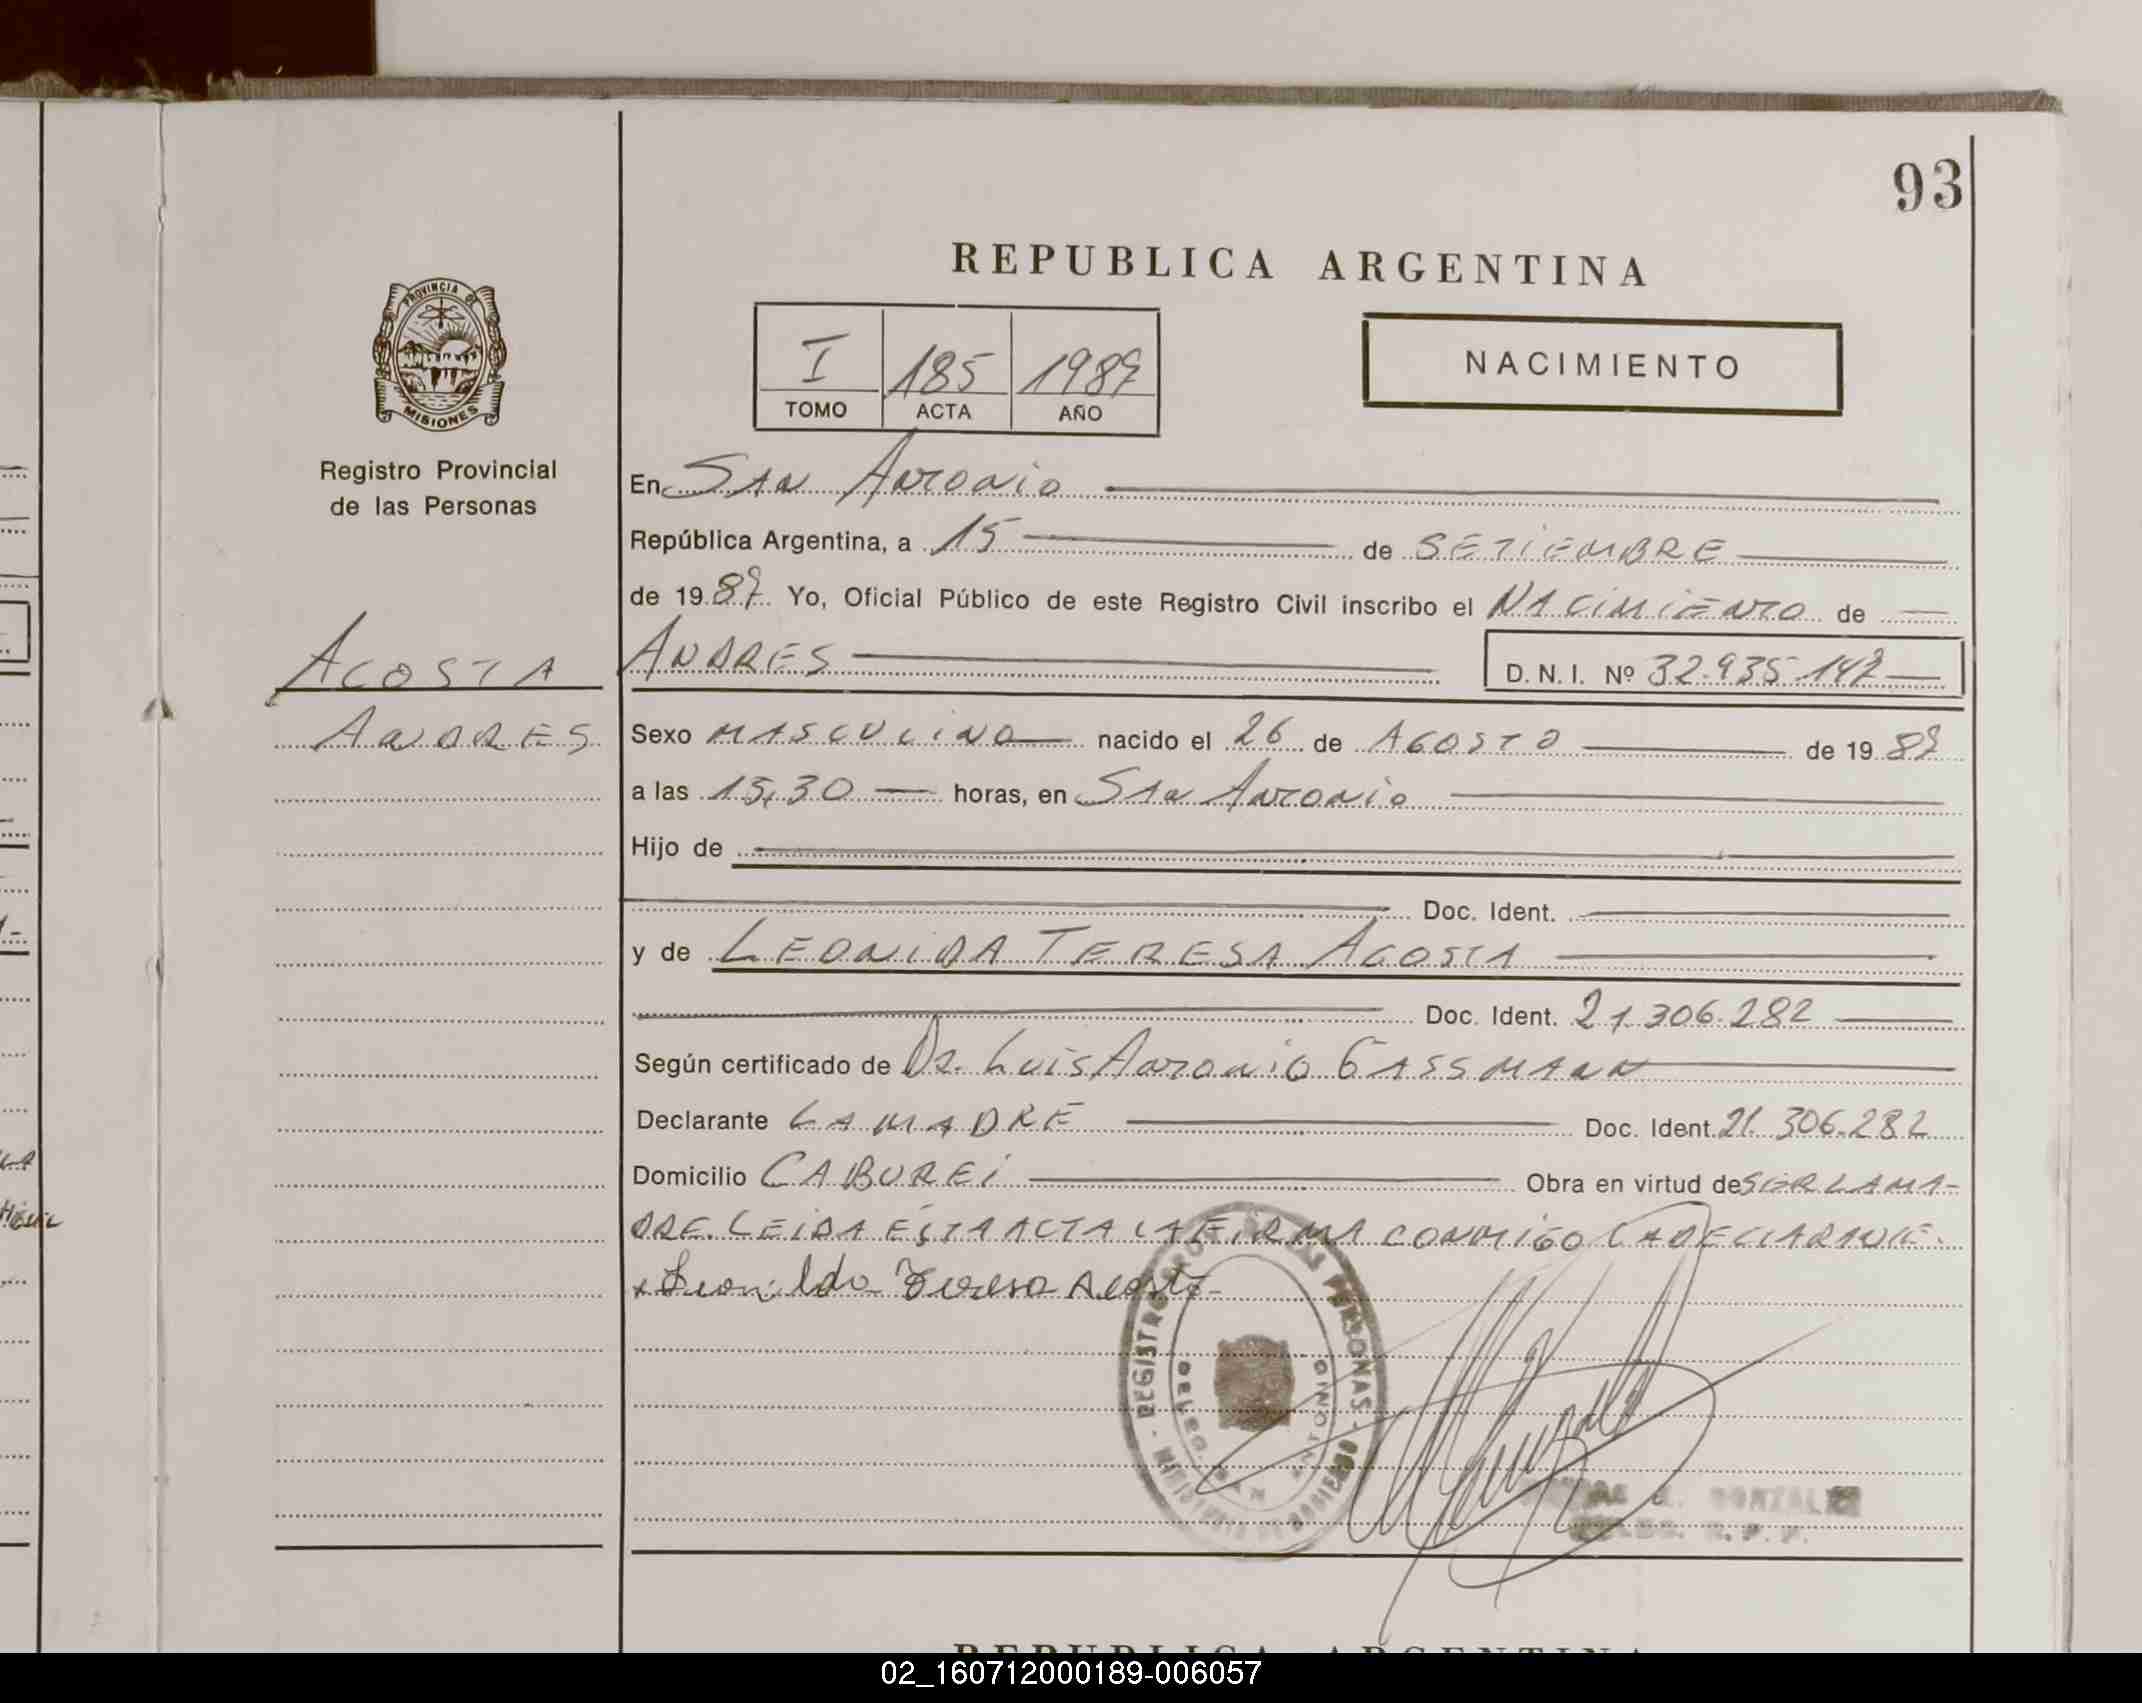 93
REPUBLICA ARGENTINA
PROVINCIA DE
MISIONES
Registro Provincial
de las Personas
I 185 1987
TOMO ACTA AÑO
NACIMIENTO
En San Antonio
República Argentina, a 15 de SETIEMBRE
de 1987 Yo, Oficial Público de este Registro Civil inscribo el NACIMIENTO de
ACOSTA
ANDRES
ANDRES D. N. I. Nº 32.935.147
Sexo MASCULINO nacido el 26 de AGOSTO de 1987
a las 15,30 horas, en San Antonio
Hijo de
Doc. Ident.
y de LEONIDA TERESA ACOSTA
Doc. Ident. 21.306.282
Según certificado de Dr. Luis Antonio GASSMANN
Declarante LA MADRE Doc. Ident. 21.306.282
Domicilio CABUREI Obra en virtud de SER LA MA-
DRE. LEIDA ESTA ACTA LA FIRMA CONMIGO LA DECLARANTE.
Leonilda Teresa Acosta
REGISTRO PERSONAS
GONZALEZ
R. P. P.
REPUBLICA ARGENTINA
02_160712000189-006057